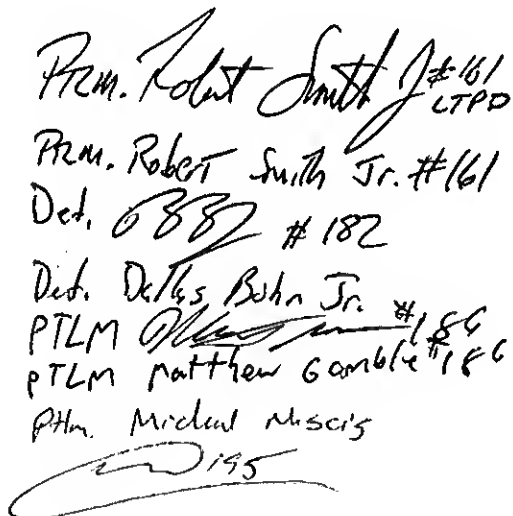 Ptlm. Robert Smith Jr #161
LTPD
Ptlm. Robert Smith Jr. #161
Det. #182
Det. Dallas Bohn Jr.
PTLM #186
PTLM Matthew Gamble #186
Ptlm. Michael
195